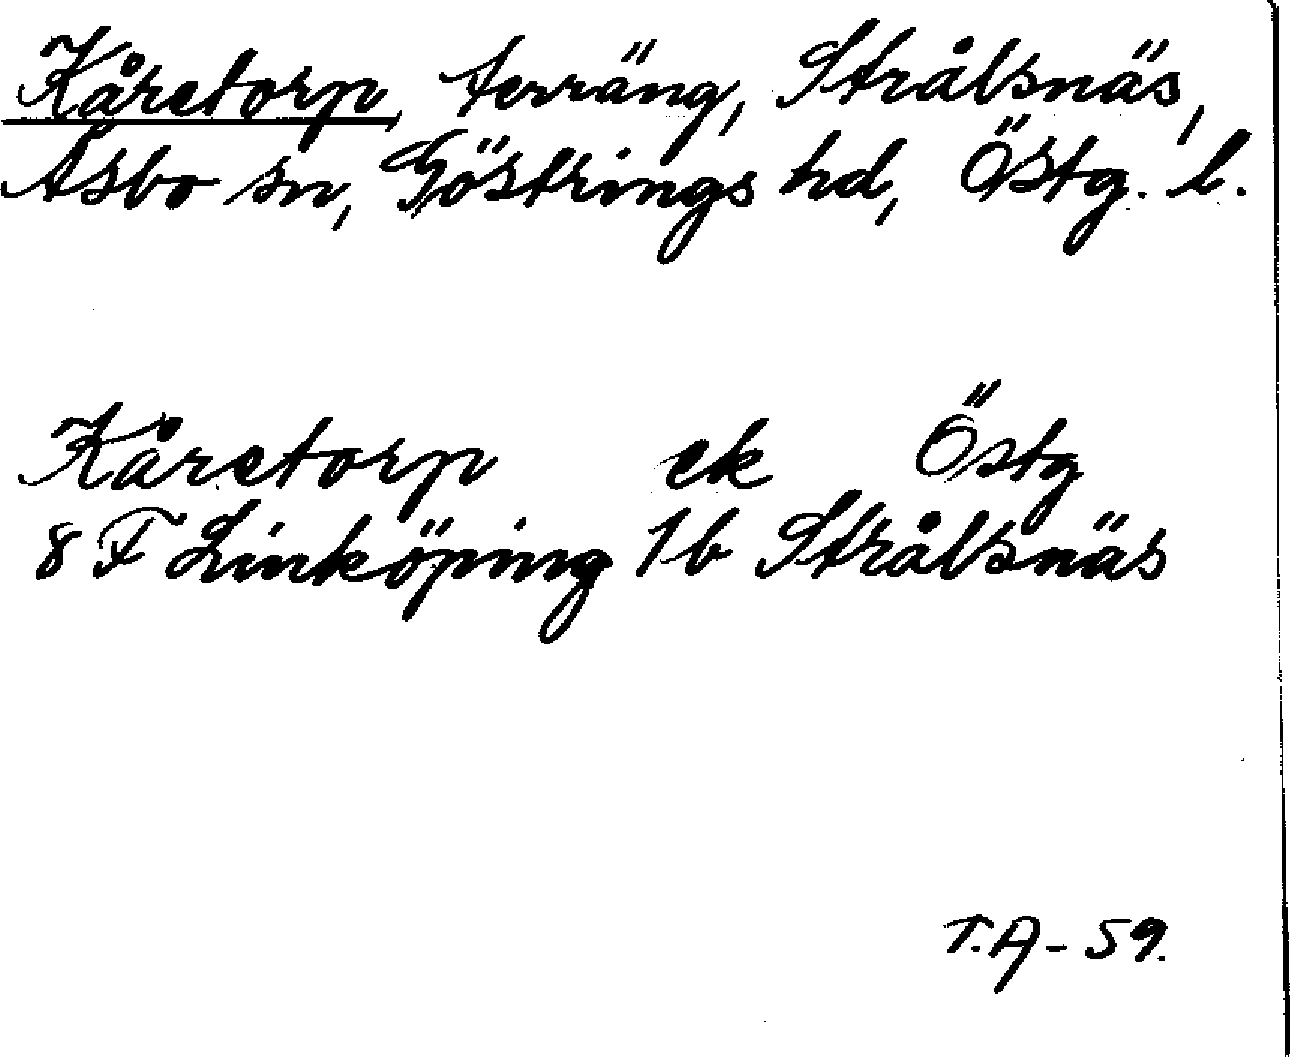 Kåretorp, terräng, Strålsnäs,
Åsbo sn, Göstrings hd, Östg. l.
Kåretorp ek Östg
8 F Linköping 1b Strålsnäs
T.A - 59.